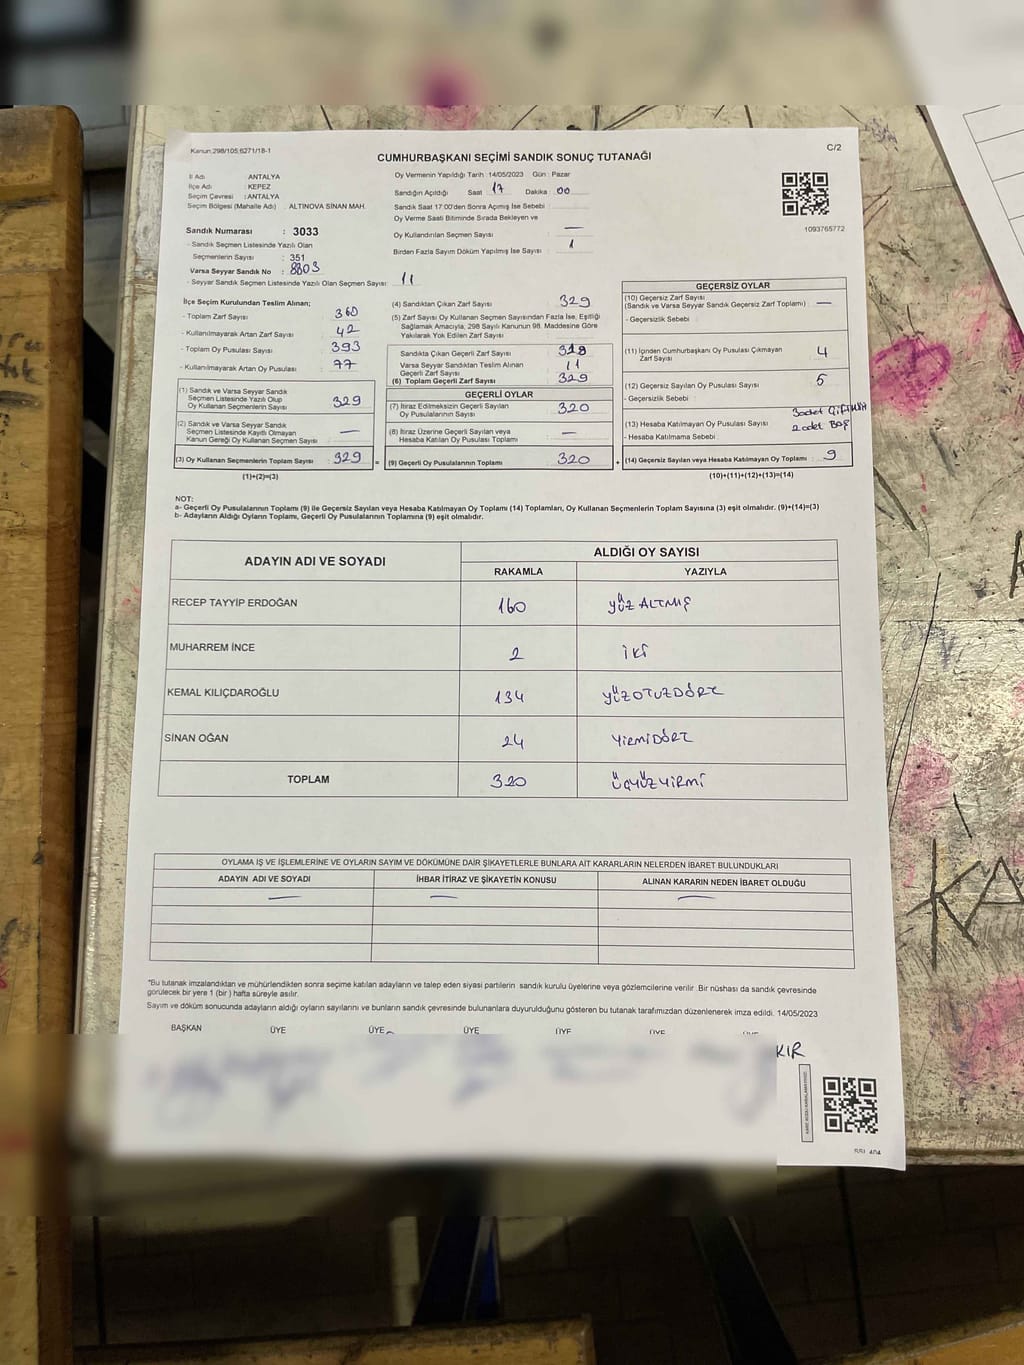 Kanun:298/105,6271/18-1
C/2
CUMHURBAŞKANI SEÇİMİ SANDIK SONUÇ TUTANAĞI
İl Adı : ANTALYA
İlçe Adı : KEPEZ
Seçim Çevresi : ANTALYA
Seçim Bölgesi (Mahalle Adı) : ALTINOVA SİNAN MAH.
Sandık Numarası : 3033
- Sandık Seçmen Listesinde Yazılı Olan
Seçmenlerin Sayısı : 351
Varsa Seyyar Sandık No : 8803
- Seyyar Sandık Listesinde Yazılı Olan Seçmen Sayısı: 11
Oy Vermenin Yapıldığı Tarih :14/05/2023 Gün : Pazar
Sandığın Açıldığı Saat 17 Dakika 00
Sandık Saat 17:00'den Sonra Açımış İse Sebebi :
Oy Verme Saati Bitiminde Sırada Bekleyen ve
Oy Kullandırılan Seçmen Sayısı : —
Birden Fazla Sayım Döküm Yapılmış İse Sayısı : 1
1093765772
İlçe Seçim Kurulundan Teslim Alınan;
- Toplam Zarf Sayısı : 360
- Kullanılmayarak Artan Zarf Sayısı : 42
- Toplam Oy Pusulası Sayısı : 393
- Kullanılmayarak Artan Oy Pusulası : 77
(1) Sandık ve Varsa Seyyar Sandık
Seçmen Listesinde Yazılı Olup
Oy Kullanan Seçmenlerin Sayısı : 329
(2) Sandık ve Varsa Seyyar Sandık
Seçmen Listesinde Kayıtlı Olmayan
Kanun Gereği Oy Kullanan Seçmen Sayısı : —
(3) Oy Kullanan Seçmenlerin Toplam Sayısı : 329 =
(1)+(2)=(3)
(4) Sandıktan Çıkan Zarf Sayısı : 329
(5) Zarf Sayısı Oy Kullanan Seçmen Sayısından Fazla İse, Eşitliği
Sağlamak Amacıyla, 298 Sayılı Kanunun 98. Maddesine Göre
Yakılarak Yok Edilen Zarf Sayısı :
Sandıkta Çıkan Geçerli Zarf Sayısı : 318
Varsa Seyyar Sandıktan Teslim Alınan
Geçerli Zarf Sayısı : 11
(6) Toplam Geçerli Zarf Sayısı : 329
GEÇERLİ OYLAR
(7) İtiraz Edilmeksizin Geçerli Sayılan
Oy Pusulalarının Sayısı : 320
(8) İtiraz Üzerine Geçerli Sayılan veya
Hesaba Katılan Oy Pusulası Toplamı : —
(9) Geçerli Oy Pusulalarının Toplamı : 320 +
GEÇERSİZ OYLAR
(10) Geçersiz Zarf Sayısı
(Sandık ve Varsa Seyyar Sandık Geçersiz Zarf Toplamı) : —
- Geçersizlik Sebebi :
(11) İçinden Cumhurbaşkanı Oy Pusulası Çıkmayan
Zarf Sayısı : 4
(12) Geçersiz Sayılan Oy Pusulası Sayısı : 5
- Geçersizlik Sebebi :
3 adet
2 adet BOŞ
(13) Hesaba Katılmayan Oy Pusulası Sayısı :
- Hesaba Katılmama Sebebi :
(14) Geçersiz Sayılan veya Hesaba Katılmayan Oy Toplamı : 9
(10)+(11)+(12)+(13)=(14)
NOT:
a- Geçerli Oy Pusulalarının Toplamı (9) ile Geçersiz Sayılan veya Hesaba Katılmayan Oy Toplamı (14) Toplamları, Oy Kullanan Seçmenlerin Toplam Sayısına (3) eşit olmalıdır. (9)+(14)=(3)
b- Adayların Aldığı Oyların Toplamı, Geçerli Oy Pusulalarının Toplamına (9) eşit olmalıdır.
ADAYIN ADI VE SOYADI ALDIĞI OY SAYISI
RAKAMLA YAZIYLA
RECEP TAYYİP ERDOĞAN 160 YÜZ ALTMIŞ
MUHARREM İNCE 2 İKİ
KEMAL KILIÇDAROĞLU 134 YÜZOTUZDÖRT
SİNAN OĞAN 24 YİRMİDÖRT
TOPLAM 320 ÜÇYÜZYİRMİ
OYLAMA İŞ VE İŞLEMLERİNE VE OYLARIN SAYIM VE DÖKÜMÜNE DAİR ŞİKAYETLERLE BUNLARA AİT KARARLARIN NELERDEN İBARET BULUNDUKLARI
ADAYIN ADI VE SOYADI İHBAR İTİRAZ VE ŞİKAYETİN KONUSU ALINAN KARARIN NEDEN İBARET OLDUĞU
— — —
*Bu tutanak imzalandıktan ve mühürlendikten sonra seçime katılan adayların ve talep eden siyasi partilerin sandık kurulu üyelerine veya gözlemcilerine verilir. Bir nüshası da sandık çevresinde
görülecek bir yere 1 (bir ) hafta süreyle asılır.
Sayım ve döküm sonucunda adayların aldığı oyların sayılarını ve bunların sandık çevresinde bulunanlara duyurulduğunu gösteren bu tutanak tarafımızdan düzenlenerek imza edildi. 14/05/2023
BAŞKAN ÜYE ÜYE ÜYE ÜYE ÜYE ÜYE
KIR
KA